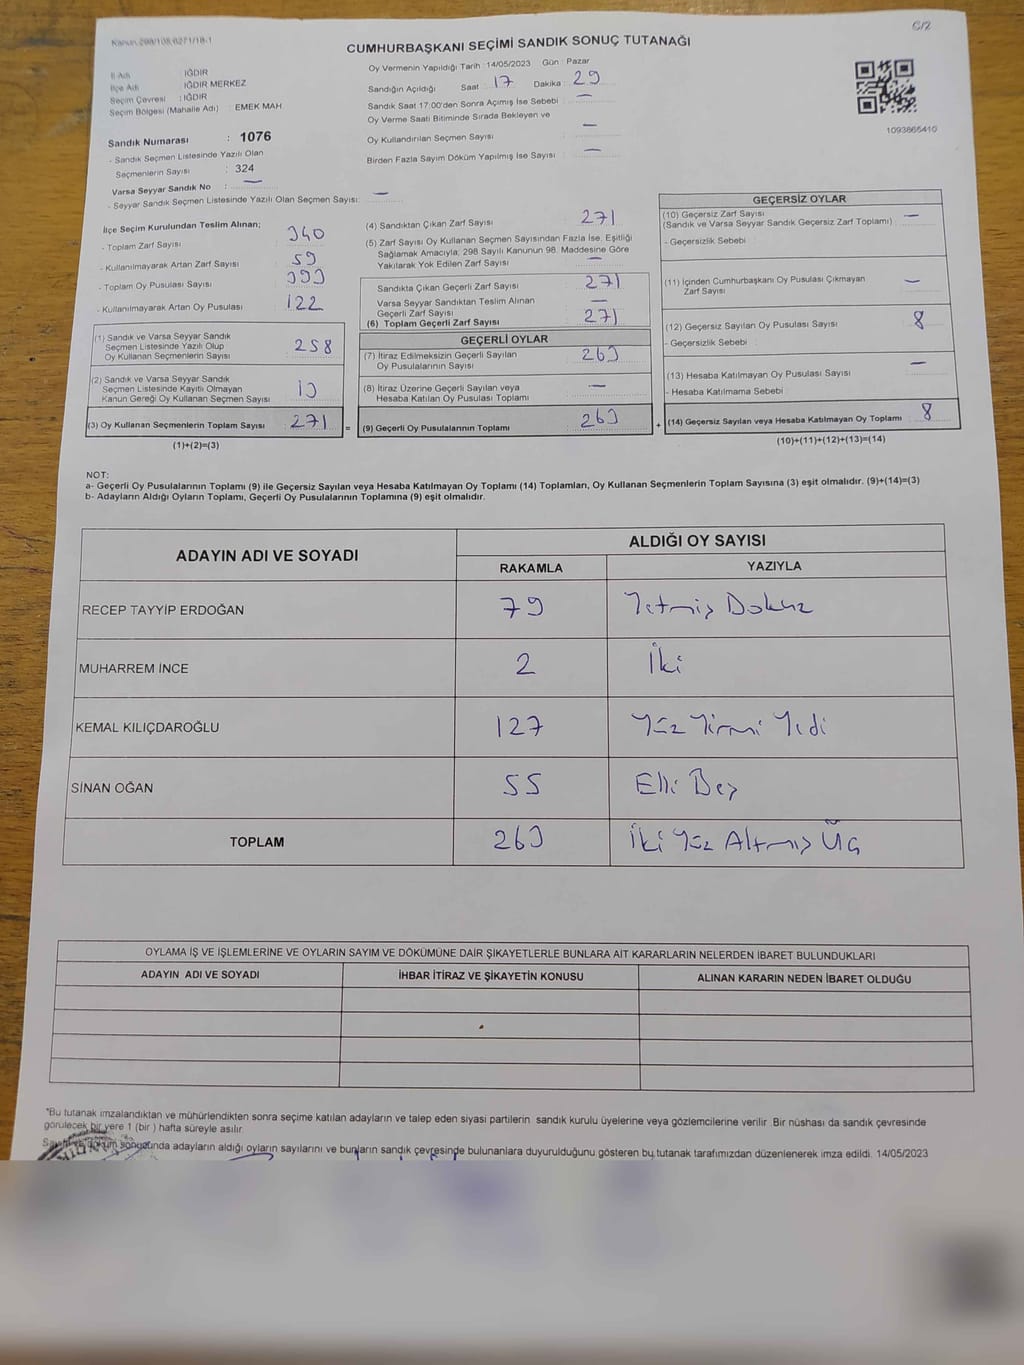 Kanun:298/105,6271/18-1
C/2
CUMHURBAŞKANI SEÇİMİ SANDIK SONUÇ TUTANAĞI
İl Adı : IĞDIR
İlçe Adı : IĞDIR MERKEZ
Seçim Çevresi : IĞDIR
Seçim Bölgesi (Mahalle Adı) : EMEK MAH
Sandık Numarası : 1076
- Sandık Seçmen Listesinde Yazılı Olan
Seçmenlerin Sayısı : 324
Varsa Seyyar Sandık No : —
- Seyyar Sandık Seçmen Listesinde Yazılı Olan Seçmen Sayısı: —
Oy Vermenin Yapıldığı Tarih : 14/05/2023 Gün : Pazar
Sandığın Açıldığı Saat : 17 Dakika : 29
Sandık Saat 17:00'den Sonra Açımış İse Sebebi : —
Oy Verme Saati Bitiminde Sırada Bekleyen ve
Oy Kullandırılan Seçmen Sayısı : —
Birden Fazla Sayım Döküm Yapılmış İse Sayısı : —
1093865410
İlçe Seçim Kurulundan Teslim Alınan;
- Toplam Zarf Sayısı : 340
- Kullanılmayarak Artan Zarf Sayısı : 59
- Toplam Oy Pusulası Sayısı : 393
- Kullanılmayarak Artan Oy Pusulası : 122
(1) Sandık ve Varsa Seyyar Sandık
Seçmen Listesinde Yazılı Olup
Oy Kullanan Seçmenlerin Sayısı : 258
(2) Sandık ve Varsa Seyyar Sandık
Seçmen Listesinde Kayıtlı Olmayan
Kanun Gereği Oy Kullanan Seçmen Sayısı : 13
(3) Oy Kullanan Seçmenlerin Toplam Sayısı : 271
(1)+(2)=(3)
(4) Sandıktan Çıkan Zarf Sayısı : 271
(5) Zarf Sayısı Oy Kullanan Seçmen Sayısından Fazla İse, Eşitliği
Sağlamak Amacıyla; 298 Sayılı Kanunun 98. Maddesine Göre
Yakılarak Yok Edilen Zarf Sayısı : —
Sandıkta Çıkan Geçerli Zarf Sayısı : 271
Varsa Seyyar Sandıktan Teslim Alınan
Geçerli Zarf Sayısı : —
(6) Toplam Geçerli Zarf Sayısı : 271
GEÇERLİ OYLAR
(7) İtiraz Edilmeksizin Geçerli Sayılan
Oy Pusulalarının Sayısı : 263
(8) İtiraz Üzerine Geçerli Sayılan veya
Hesaba Katılan Oy Pusulası Toplamı : —
= (9) Geçerli Oy Pusulalarının Toplamı : 263
GEÇERSİZ OYLAR
(10) Geçersiz Zarf Sayısı : —
(Sandık ve Varsa Seyyar Sandık Geçersiz Zarf Toplamı)
- Geçersizlik Sebebi :
(11) İçinden Cumhurbaşkanı Oy Pusulası Çıkmayan
Zarf Sayısı : —
(12) Geçersiz Sayılan Oy Pusulası Sayısı : 8
- Geçersizlik Sebebi :
(13) Hesaba Katılmayan Oy Pusulası Sayısı : —
- Hesaba Katılmama Sebebi :
+ (14) Geçersiz Sayılan veya Hesaba Katılmayan Oy Toplamı : 8
(10)+(11)+(12)+(13)=(14)
NOT:
a- Geçerli Oy Pusulalarının Toplamı (9) ile Geçersiz Sayılan veya Hesaba Katılmayan Oy Toplamı (14) Toplamları, Oy Kullanan Seçmenlerin Toplam Sayısına (3) eşit olmalıdır. (9)+(14)=(3)
b- Adayların Aldığı Oyların Toplamı, Geçerli Oy Pusulalarının Toplamına (9) eşit olmalıdır.
ADAYIN ADI VE SOYADI
ALDIĞI OY SAYISI
RAKAMLA YAZIYLA
RECEP TAYYİP ERDOĞAN 79 Yetmiş Dokuz
MUHARREM İNCE 2 İki
KEMAL KILIÇDAROĞLU 127 Yüz Yirmi Yedi
SİNAN OĞAN 55 Elli Beş
TOPLAM 263 İki Yüz Altmış Üç
OYLAMA İŞ VE İŞLEMLERİNE VE OYLARIN SAYIM VE DÖKÜMÜNE DAİR ŞİKAYETLERLE BUNLARA AİT KARARLARIN NELERDEN İBARET BULUNDUKLARI
ADAYIN ADI VE SOYADI İHBAR İTİRAZ VE ŞİKAYETİN KONUSU ALINAN KARARIN NEDEN İBARET OLDUĞU
*Bu tutanak imzalandıktan ve mühürlendikten sonra seçime katılan adayların ve talep eden siyasi partilerin sandık kurulu üyelerine veya gözlemcilerine verilir. Bir nüshası da sandık çevresinde
görülecek bir yere 1 (bir) hafta süreyle asılır.
döküm sonucunda adayların aldığı oyların sayılarını ve bunların sandık çevresinde bulunanlara duyurulduğunu gösteren bu tutanak tarafımızdan düzenlenerek imza edildi. 14/05/2023